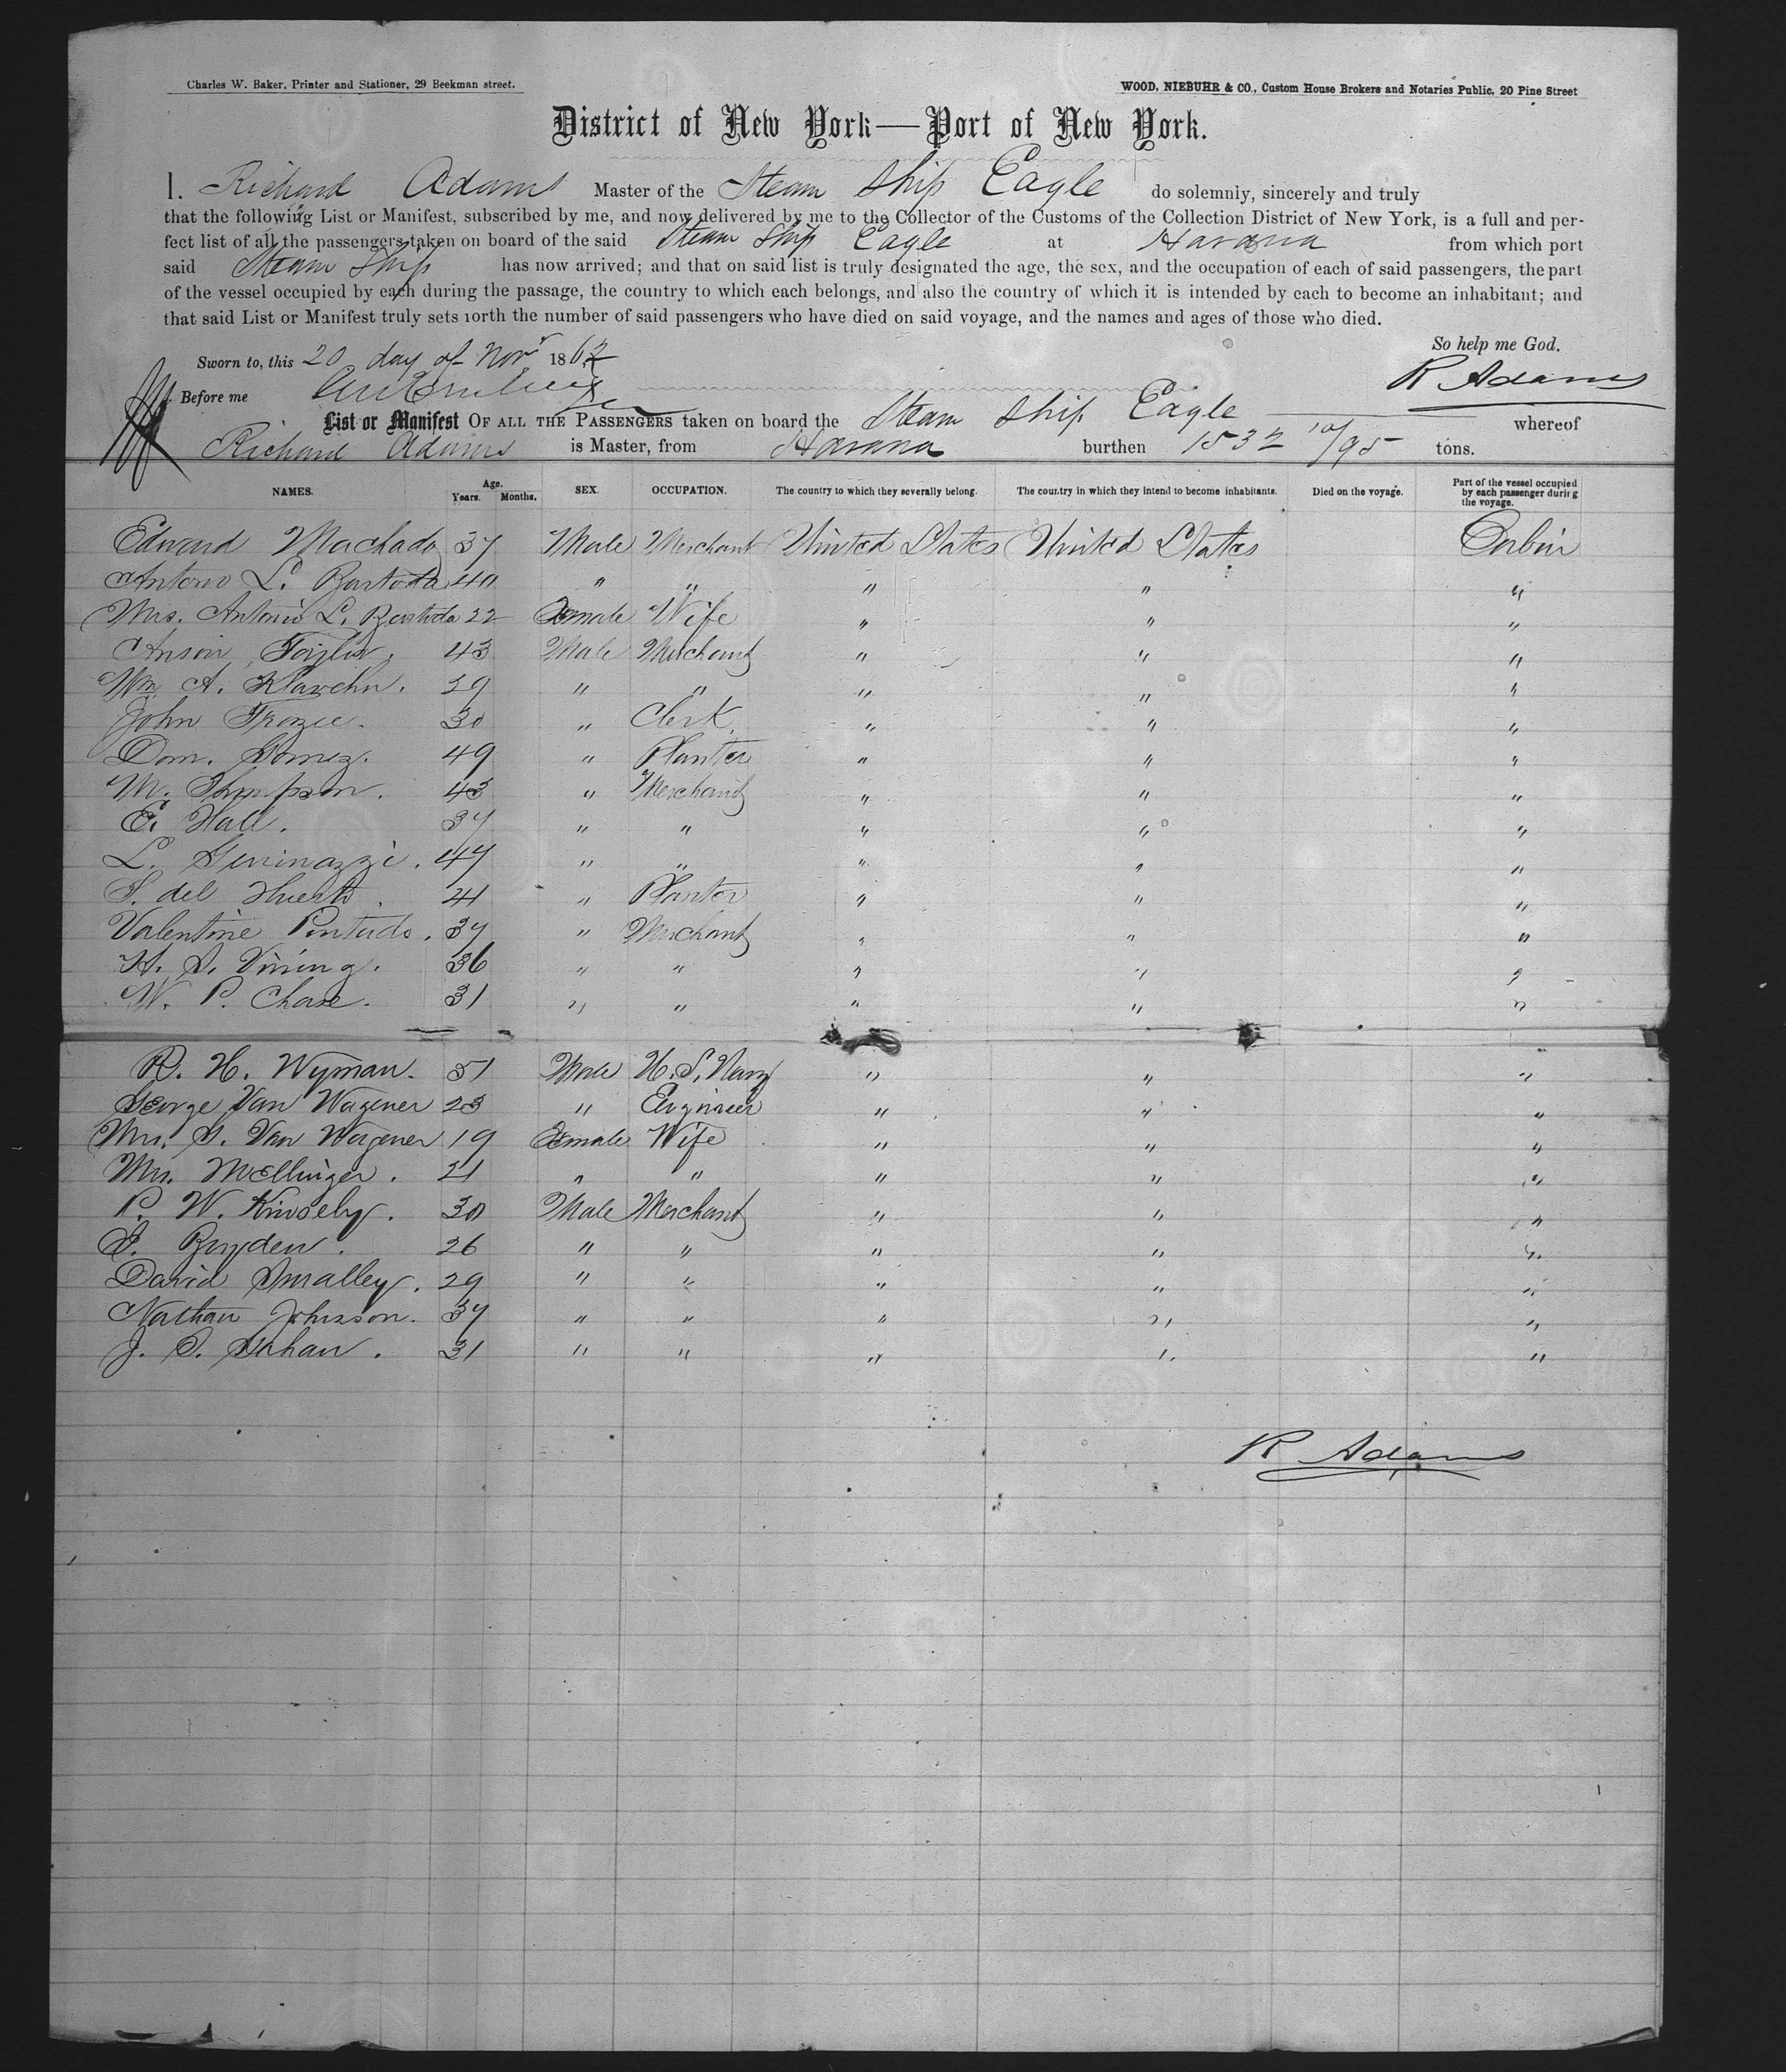 Charles W. Baker, Printer and Stationer, 29 Beekman street.
WOOD, NIEBUHR & CO., Custom House Brokers and Notaries Public, 20 Pine Street
District of New York—Port of New York.
I. Richard Adams Master of the Steam Ship Eagle do solemnly, sincerely and truly
that the following List or Manifest, subscribed by me, and now delivered by me to the Collector of the Customs of the Collection District of New York, is a full and per-
fect list of all the passengers taken on board of the said Steam Ship Eagle at Havana from which port
said Steam Ship has now arrived; and that on said list is truly designated the age, the sex, and the occupation of each of said passengers, the part
of the vessel occupied by each during the passage, the country to which each belongs, and also the country of which it is intended by each to become an inhabitant; and
that said List or Manifest truly sets forth the number of said passengers who have died on said voyage, and the names and ages of those who died.
So help me God.
Sworn to, this 20 day of Novr 186
R Adams
Before me
List or Manifest OF ALL THE PASSENGERS taken on board the Steam Ship Eagle whereof
Richard Adams is Master, from Havana burthen 1532 10/95 tons.
NAMES. Age. Years. Months. SEX. OCCUPATION. The country to which they severally belong. The country in which they intend to become inhabitants. Died on the voyage. Part of the vessel occupied by each passenger during the voyage.
Edward Machado 37 Male Merchant United States United States Cabin
Antonio L. 40 " " " " "
Mrs. Antonio L. 22 Female Wife " " "
Anson Taylor. 43 Male Merchant " " "
Wm A. 29 " " " " "
John Frazee. 30 " Clerk " " "
Dom. Gomez. 49 " Planter " " "
M. Simpson. 43 " Merchant " " "
E. Hall. 37 " " " " "
L. 47 " " " " "
del 41 " Planter " " "
Valentine Pintado. 37 " Merchant " " "
H. S. Vining. 36 " " " " "
W. P. Chase. 31 " " " " "
R. H. Wyman. 51 Male U.S. Navy " " "
George Van Wagener 23 " Engineer " " "
Mrs. G. Van Wagener 19 Female Wife " " "
Mrs. McEllinger. 21 " " " " "
P. W. Kinsely. 30 Male Merchant " " "
Boyden. 26 " " " " "
David Smalley. 29 " " " " "
Nathan Johnson. 37 " " " " "
J. S. 31 " " " " "
R Adams